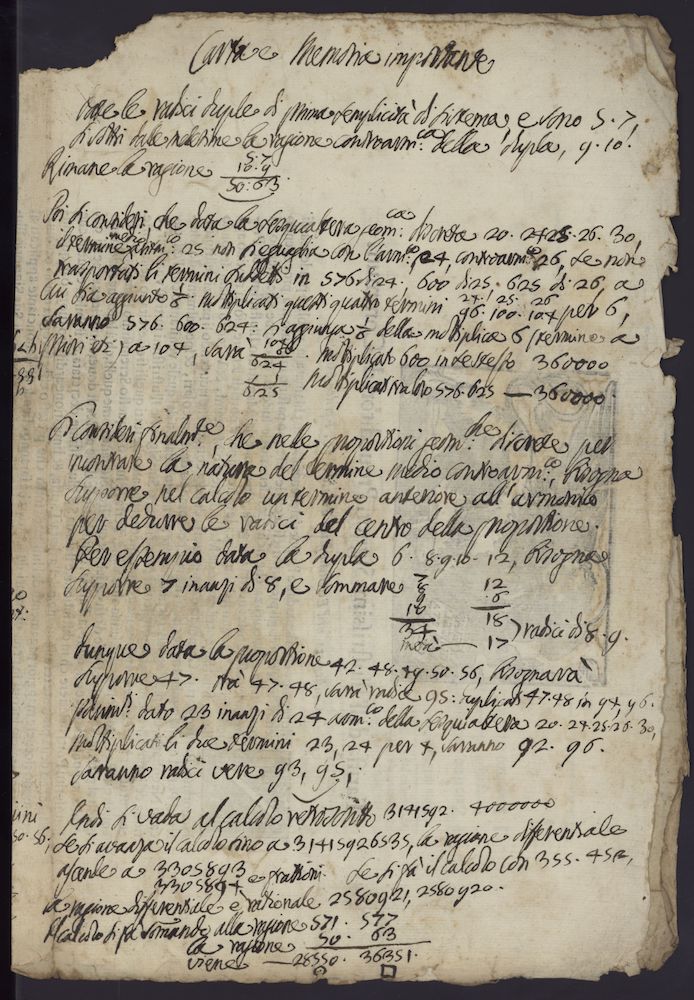 Carta e Memoria importante
date le radici duple di prima semplicità di sistema, e sono 5. 7,
si sottri dalle medesime la ragione controarm:ca della dupla, 9. 10.
Rimane la ragione 5. 7
10. 9
50. 63
Poi si consideri, che data la sesquialtera geom:ca discreta 20. 24. 25. 26. 30,
il termine medio 25 non si eguaglia con l'arm:co 24, controarm:co 26, se non
trasportati li termini suddetti in 576 di 24, 600 di 25, 625 di 26, a
cui sia aggiunto 1/6. moltiplicati questi quattro termini 24. 25. 26
96. 100. 104 per 6,
saranno 576. 600. 624: s'aggiunga 1/6 della moltiplice 6 (termine a
) a 104, sarà 104
6
624
1
625
moltiplicato 600 in se stesso 360000
moltiplicati tra loro 576. 625 — 360000.
Si consideri finalmte, che nelle proporzioni geom:che discrete per
mostrare la natura del termine medio controarm:co, bisogna
supporre nel calcolo un termine anteriore all'armonico
per dedurre le radici del centro della proporzione.
Per essempio data la dupla 6. 8. 9. 10. 12, bisogna
supporre 7 inanzi di 8, e sommare 7
8
9
10
34
metà — 17
12
6
18
radici di 8. 9.
dunque data la proporzione 42. 48. 49. 50. 56, bisognava
supporre 47. stà 47. 48, sarà radice 95: duplicati 47. 48 in 94. 96.
dato 23 inanzi di 24 arm:co della sesquialtera 20. 24. 25. 26. 30,
moltiplicati li due termini 23, 24 per 4, saranno 92. 96.
saranno radici vere 93, 95,
Indi si vada al calcolo 3141592. 4000000
se si avanza il calcolo sino a 31415926535, la ragione differenziale
ascende a 3305893
3305894 e frattioni. Se si fà il calcolo con 355. 452,
la ragione differenziale è rationale 2580921, 2580920.
Il calcolo si fà sommando alla ragione 571. 577
la ragione 50. 63
viene — 28550. 36351.